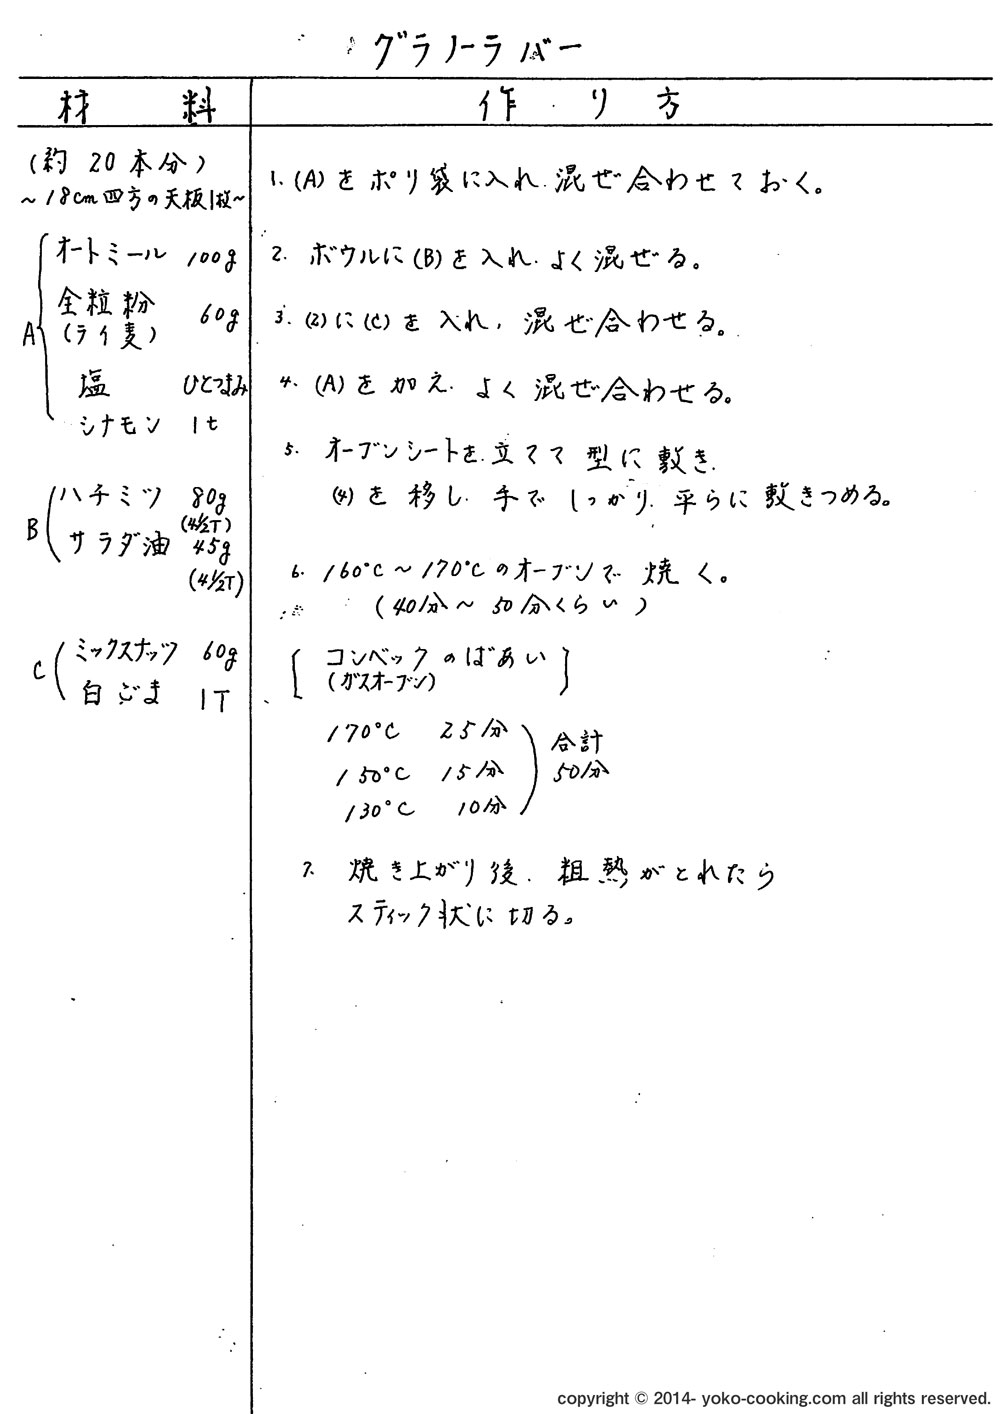 グラノーラバー
材 料
作 り 方
(約 20本分)
～18cm四方の天板1枚～
A
オートミール 100g
全粒粉 60g
(ライ麦)
塩 ひとつまみ
シナモン 1t
B
ハチミツ 80g
(4½T)
サラダ油 45g
(4½T)
C
ミックスナッツ 60g
白ごま 1T
1. (A)をポリ袋に入れ、混ぜ合わせておく。
2. ボウルに(B)を入れ、よく混ぜる。
3. (2)に(C)を入れ、混ぜ合わせる。
4. (A)を加え、よく混ぜ合わせる。
5. オーブンシートを立てて型に敷き、
(4)を移し、手でしっかり、平らに敷きつめる。
6. 160℃～170℃のオーブンで焼く。
(40分～50分くらい)
[コンベックのばあい]
(ガスオーブン)
170℃ 25分
150℃ 15分
130℃ 10分
合計
50分
7. 焼き上がり後、粗熱がとれたら
スティック状に切る。
copyright © 2014- yoko-cooking.com all rights reserved.